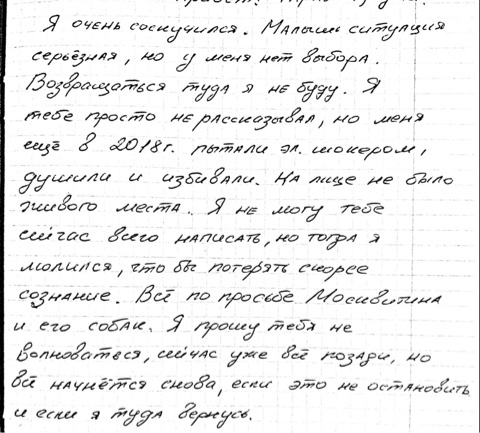 Я очень соскучился. Малыш ситуация
серьёзная, но у меня нет выбора.
Возвращаться туда я не буду. Я
тебе просто не рассказывал, но меня
ещё в 2018г. пытали эл. шокером,
душили и избивали. На лице не было
живого места. Я не могу тебе
сейчас всего написать, но тогда я
молился, что бы потерять скорее
сознание. Всё по просьбе Москвитина
и его собак. Я прошу тебя не
волноваться, сейчас уже всё позади, но
всё начнётся снова, если это не остановить
и если я туда вернусь.